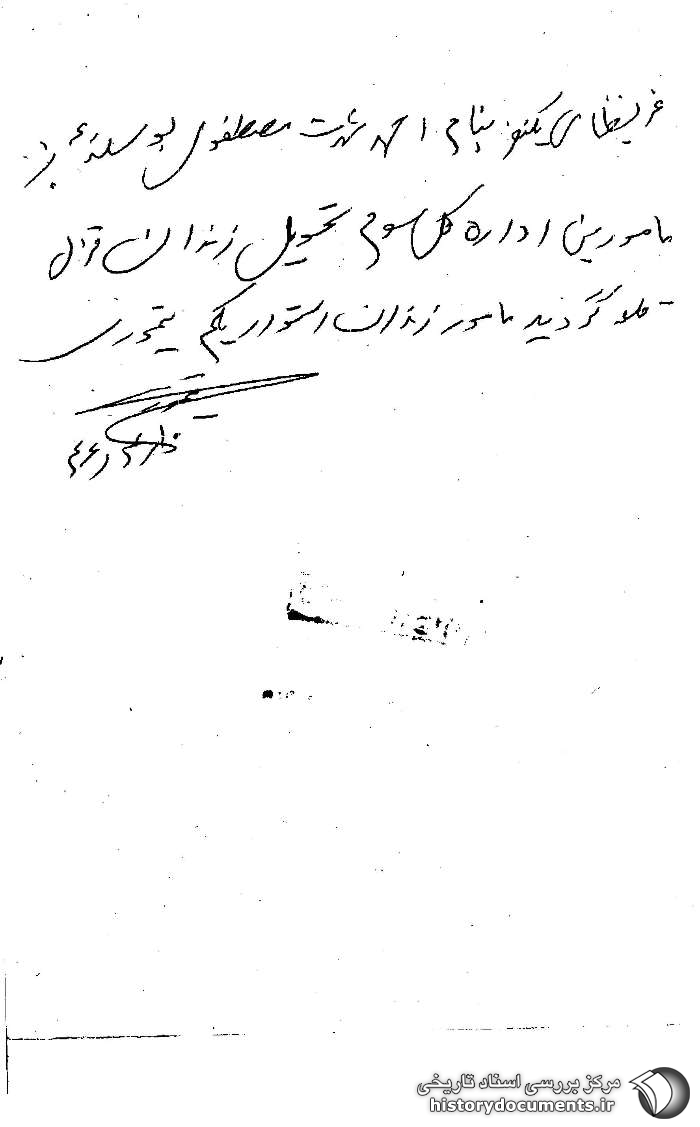 غیرنظامی یکنفر بنام احمد شهرت مصطفوی بوسیله
مامورین اداره کل سوم تحویل زندان قزل
قلعه گردید مامور زندان استوار یکم تیموری
مرکز بررسی اسناد تاریخی
historydocuments.ir